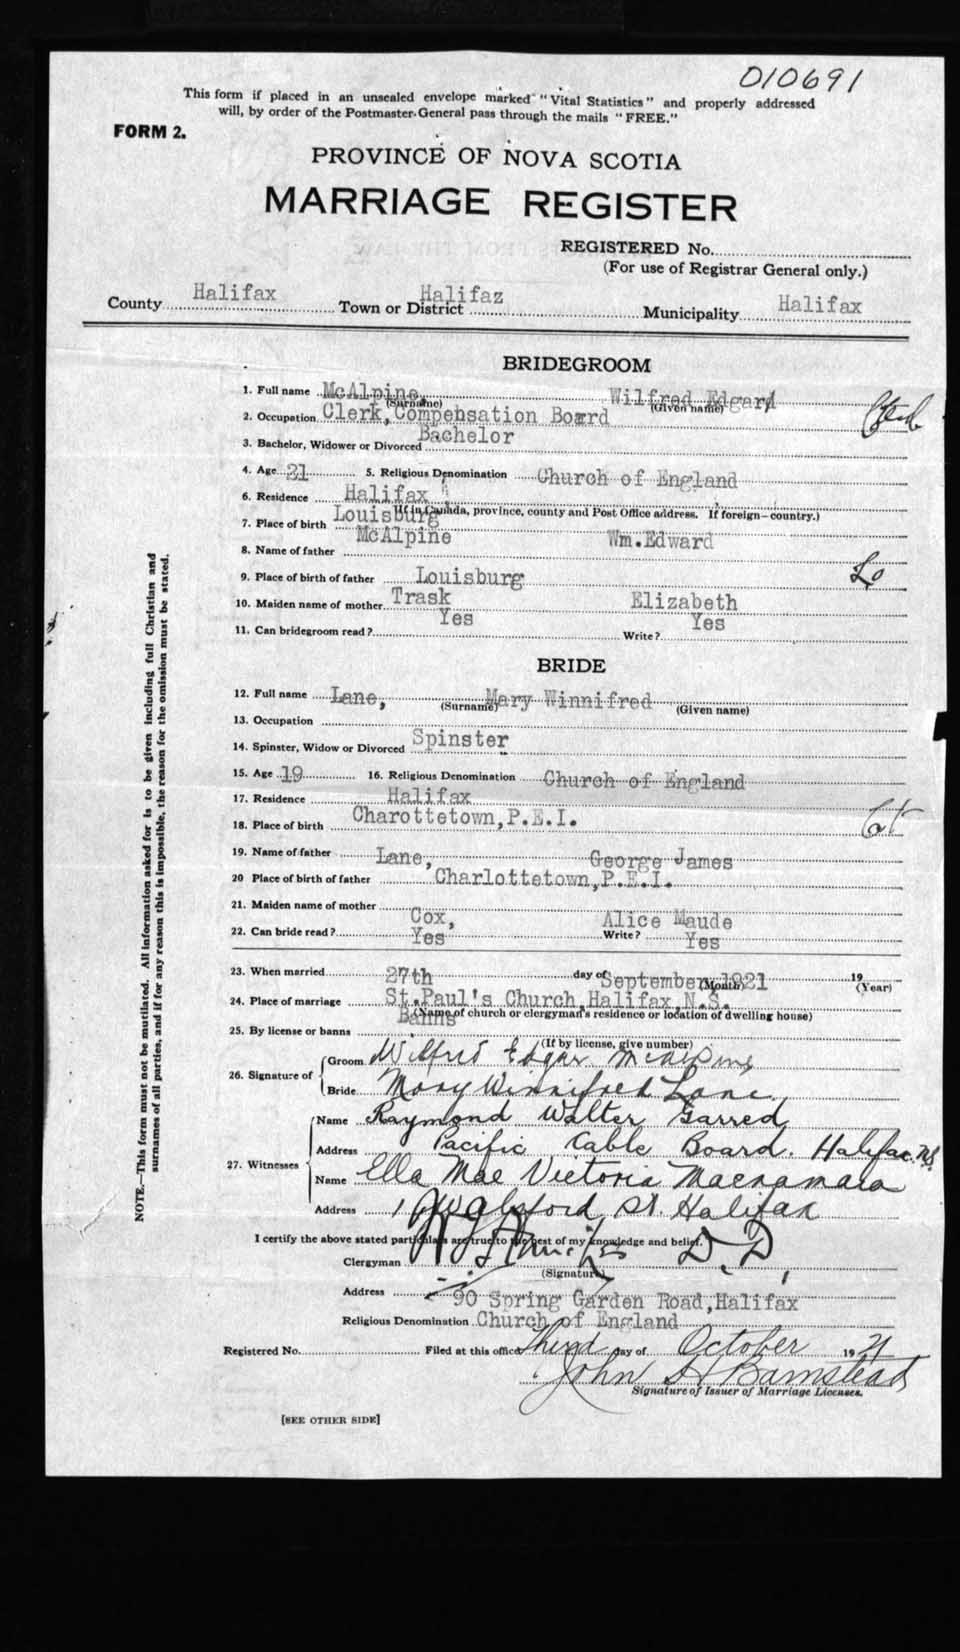 010691
This form if placed in an unsealed envelope marked "Vital Statistics" and properly addressed
will, by order of the Postmaster-General pass through the mails "FREE."
FORM 2.
PROVINCE OF NOVA SCOTIA
MARRIAGE REGISTER
REGISTERED No.
(For use of Registrar General only.)
County Halifax Town or District Halifaz Municipality Halifax
BRIDEGROOM
1. Full name McAlpine, Wilfred Edgard
(Surname) (Given name)
2. Occupation Clerk, Compensation Board
3. Bachelor, Widower or Divorced Bachelor
4. Age 21 5. Religious Denomination Church of England
6. Residence Halifax
(If in Canada, province, county and Post Office address. If foreign—country.)
7. Place of birth Louisburg
8. Name of father McAlpine Wm.Edward
9. Place of birth of father Louisburg
10. Maiden name of mother Trask Elizabeth
11. Can bridegroom read? Yes Write? Yes
BRIDE
12. Full name Lane, Mary Winnifred
(Surname) (Given name)
13. Occupation
14. Spinster, Widow or Divorced Spinster
15. Age 19 16. Religious Denomination Church of England
17. Residence Halifax
18. Place of birth Charottetown,P.E.I.
19. Name of father Lane, George James
20 Place of birth of father Charlottetown,P.E.I.
21. Maiden name of mother Cox, Alice Maude
22. Can bride read? Yes Write? Yes
23. When married 27th day of September 1921 19
(Month) (Year)
24. Place of marriage St.Paul's Church,Halifax,N.S.
(Name of church or clergyman's residence or location of dwelling house)
25. By license or banns Banns
(If by license, give number)
26. Signature of Groom Wilfred Edgar McAlpine
Bride Mary Winnifred Lane
27. Witnesses Name Raymond Walter Garred
Address Pacific Cable Board. Halifax. N.S.
Name Ella Mae Victoria Macnamara
Address St. Halifax
I certify the above stated particulars are true to the best of my knowledge and belief.
Clergyman D.D.
(Signature)
Address 90 Spring Garden Road,Halifax
Religious Denomination Church of England
Registered No. Filed at this office Third day of October 1921
John H Barnstead
Signature of Issuer of Marriage Licenses.
[SEE OTHER SIDE]
NOTE.—This form must not be mutilated. All information asked for is to be given including full Christian and
surnames of all parties, and if for any reason this is impossible, the reason for the omission must be stated.